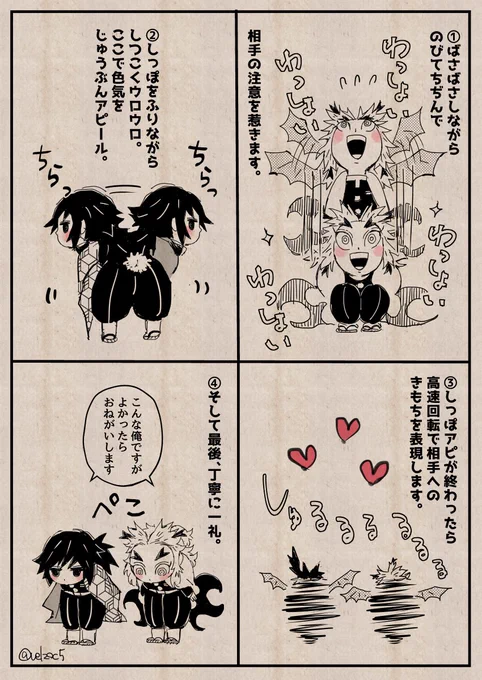 ①ばさばさしながら
のびてちぢんで
相手の注意を惹きます。
わっしょい
わっしょい
わっしょい
わっしょい
②しっぽをふりながら
しつこくウロウロ。
ここで色気を
じゅうぶんアピール。
ちらっ
ちらっ
③しっぽアピが終わったら
高速回転で相手への
きもちを表現します。
しゅるるるるるる
④そして最後、丁寧に一礼。
こんな俺ですが
よかったら
おねがいします
ぺこ